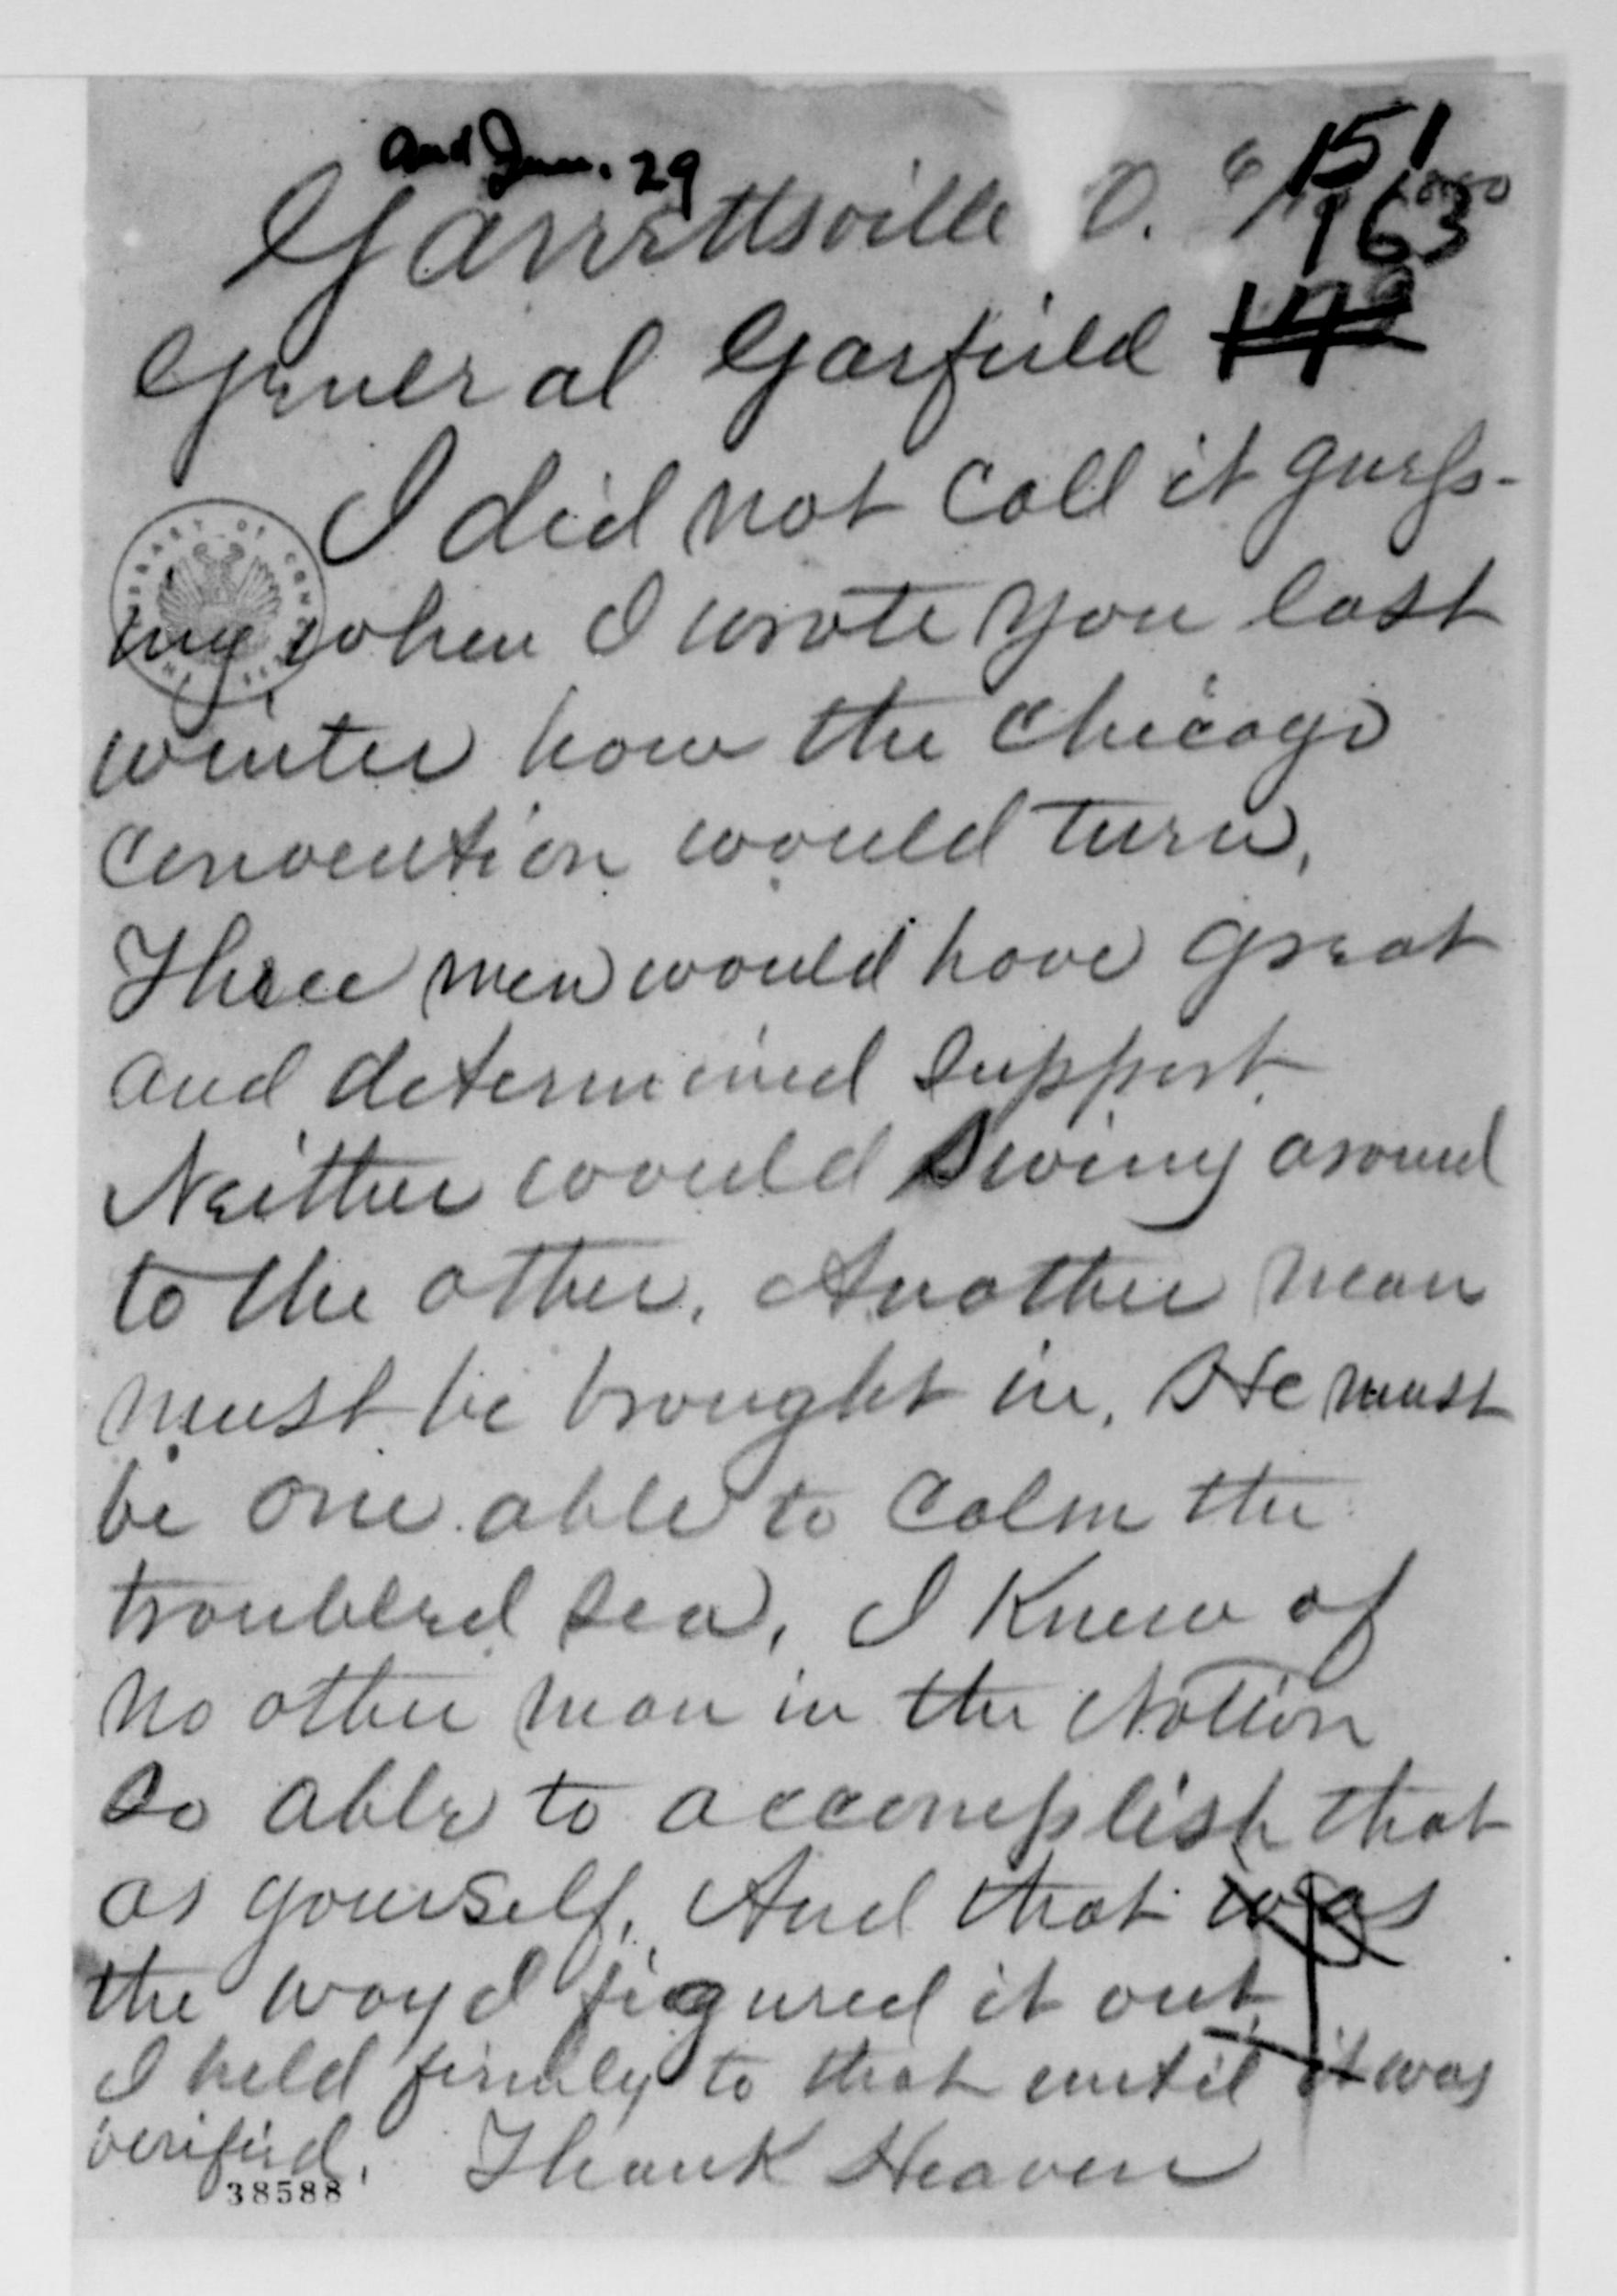 and Jun. 29
Garrettsville O. 6/
151
163
General Garfield
I did not call it guess-
ing when I wrote you last
winter how the Chicago
Convention would turn,
Three men would have great
and determined support.
Neither would Swing around
to the other. Another man
must be brought in. He must
be one able to calm the
troubled sea, I knew of
no other man in the Nation
so able to accomplish that
as yourself. And that was
the way I figured it out
I held firmly to that until it was
verified. Thank Heaven
38588